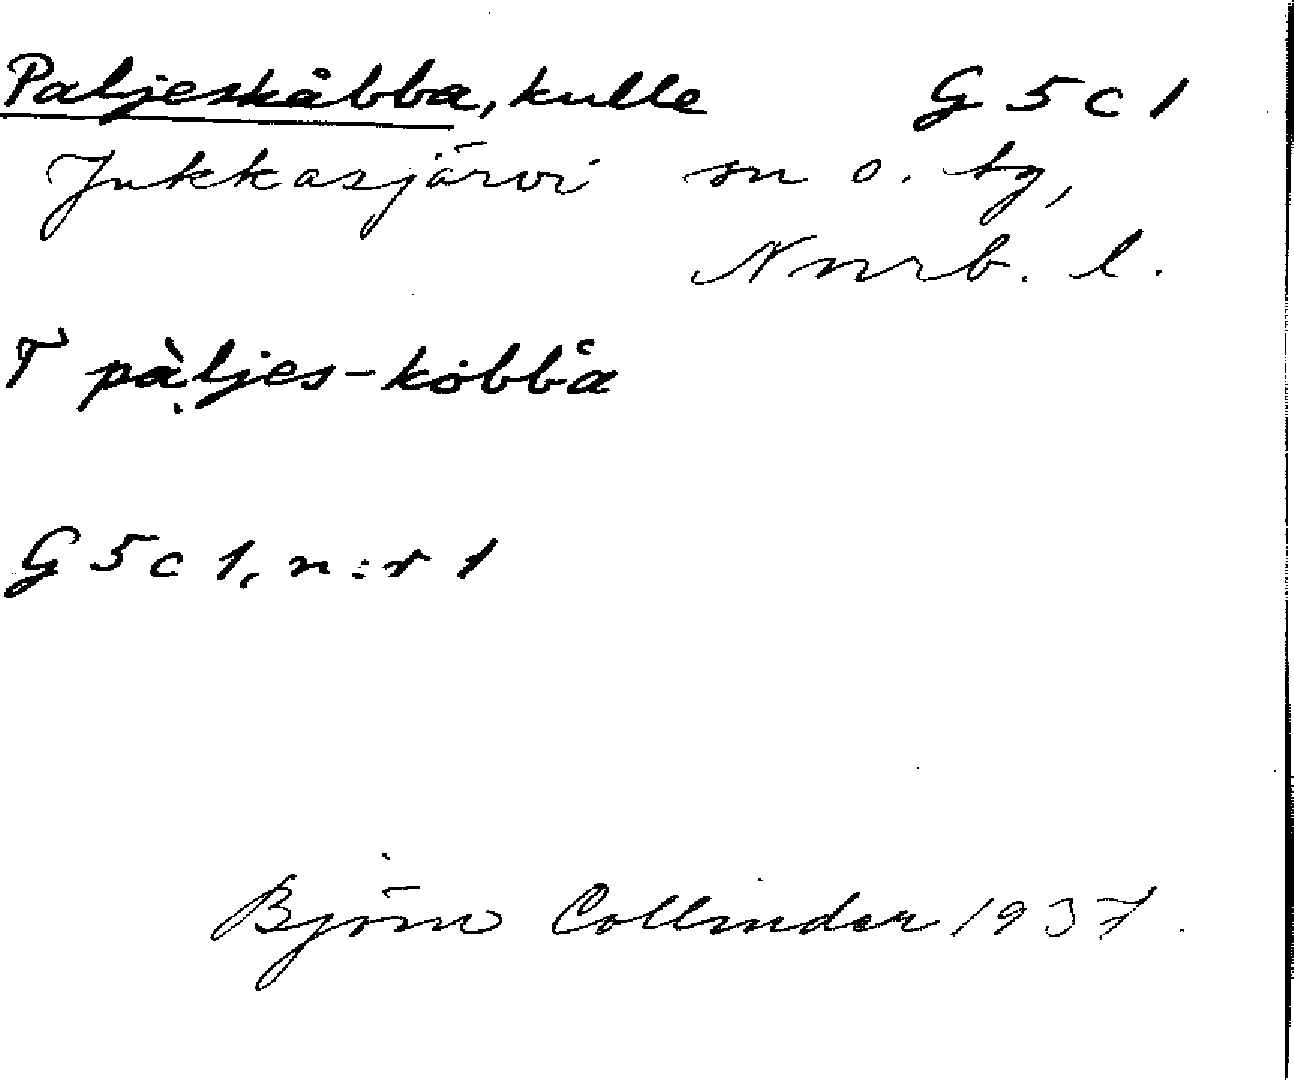 Paljeskåbba, kulle G 5 c 1
Jukkasjärvi sn o. tg,
Nnrb. l.
T pạ̀ljes-kobbå
G 5 c 1, n:r 1
Björn Collinder 1937.